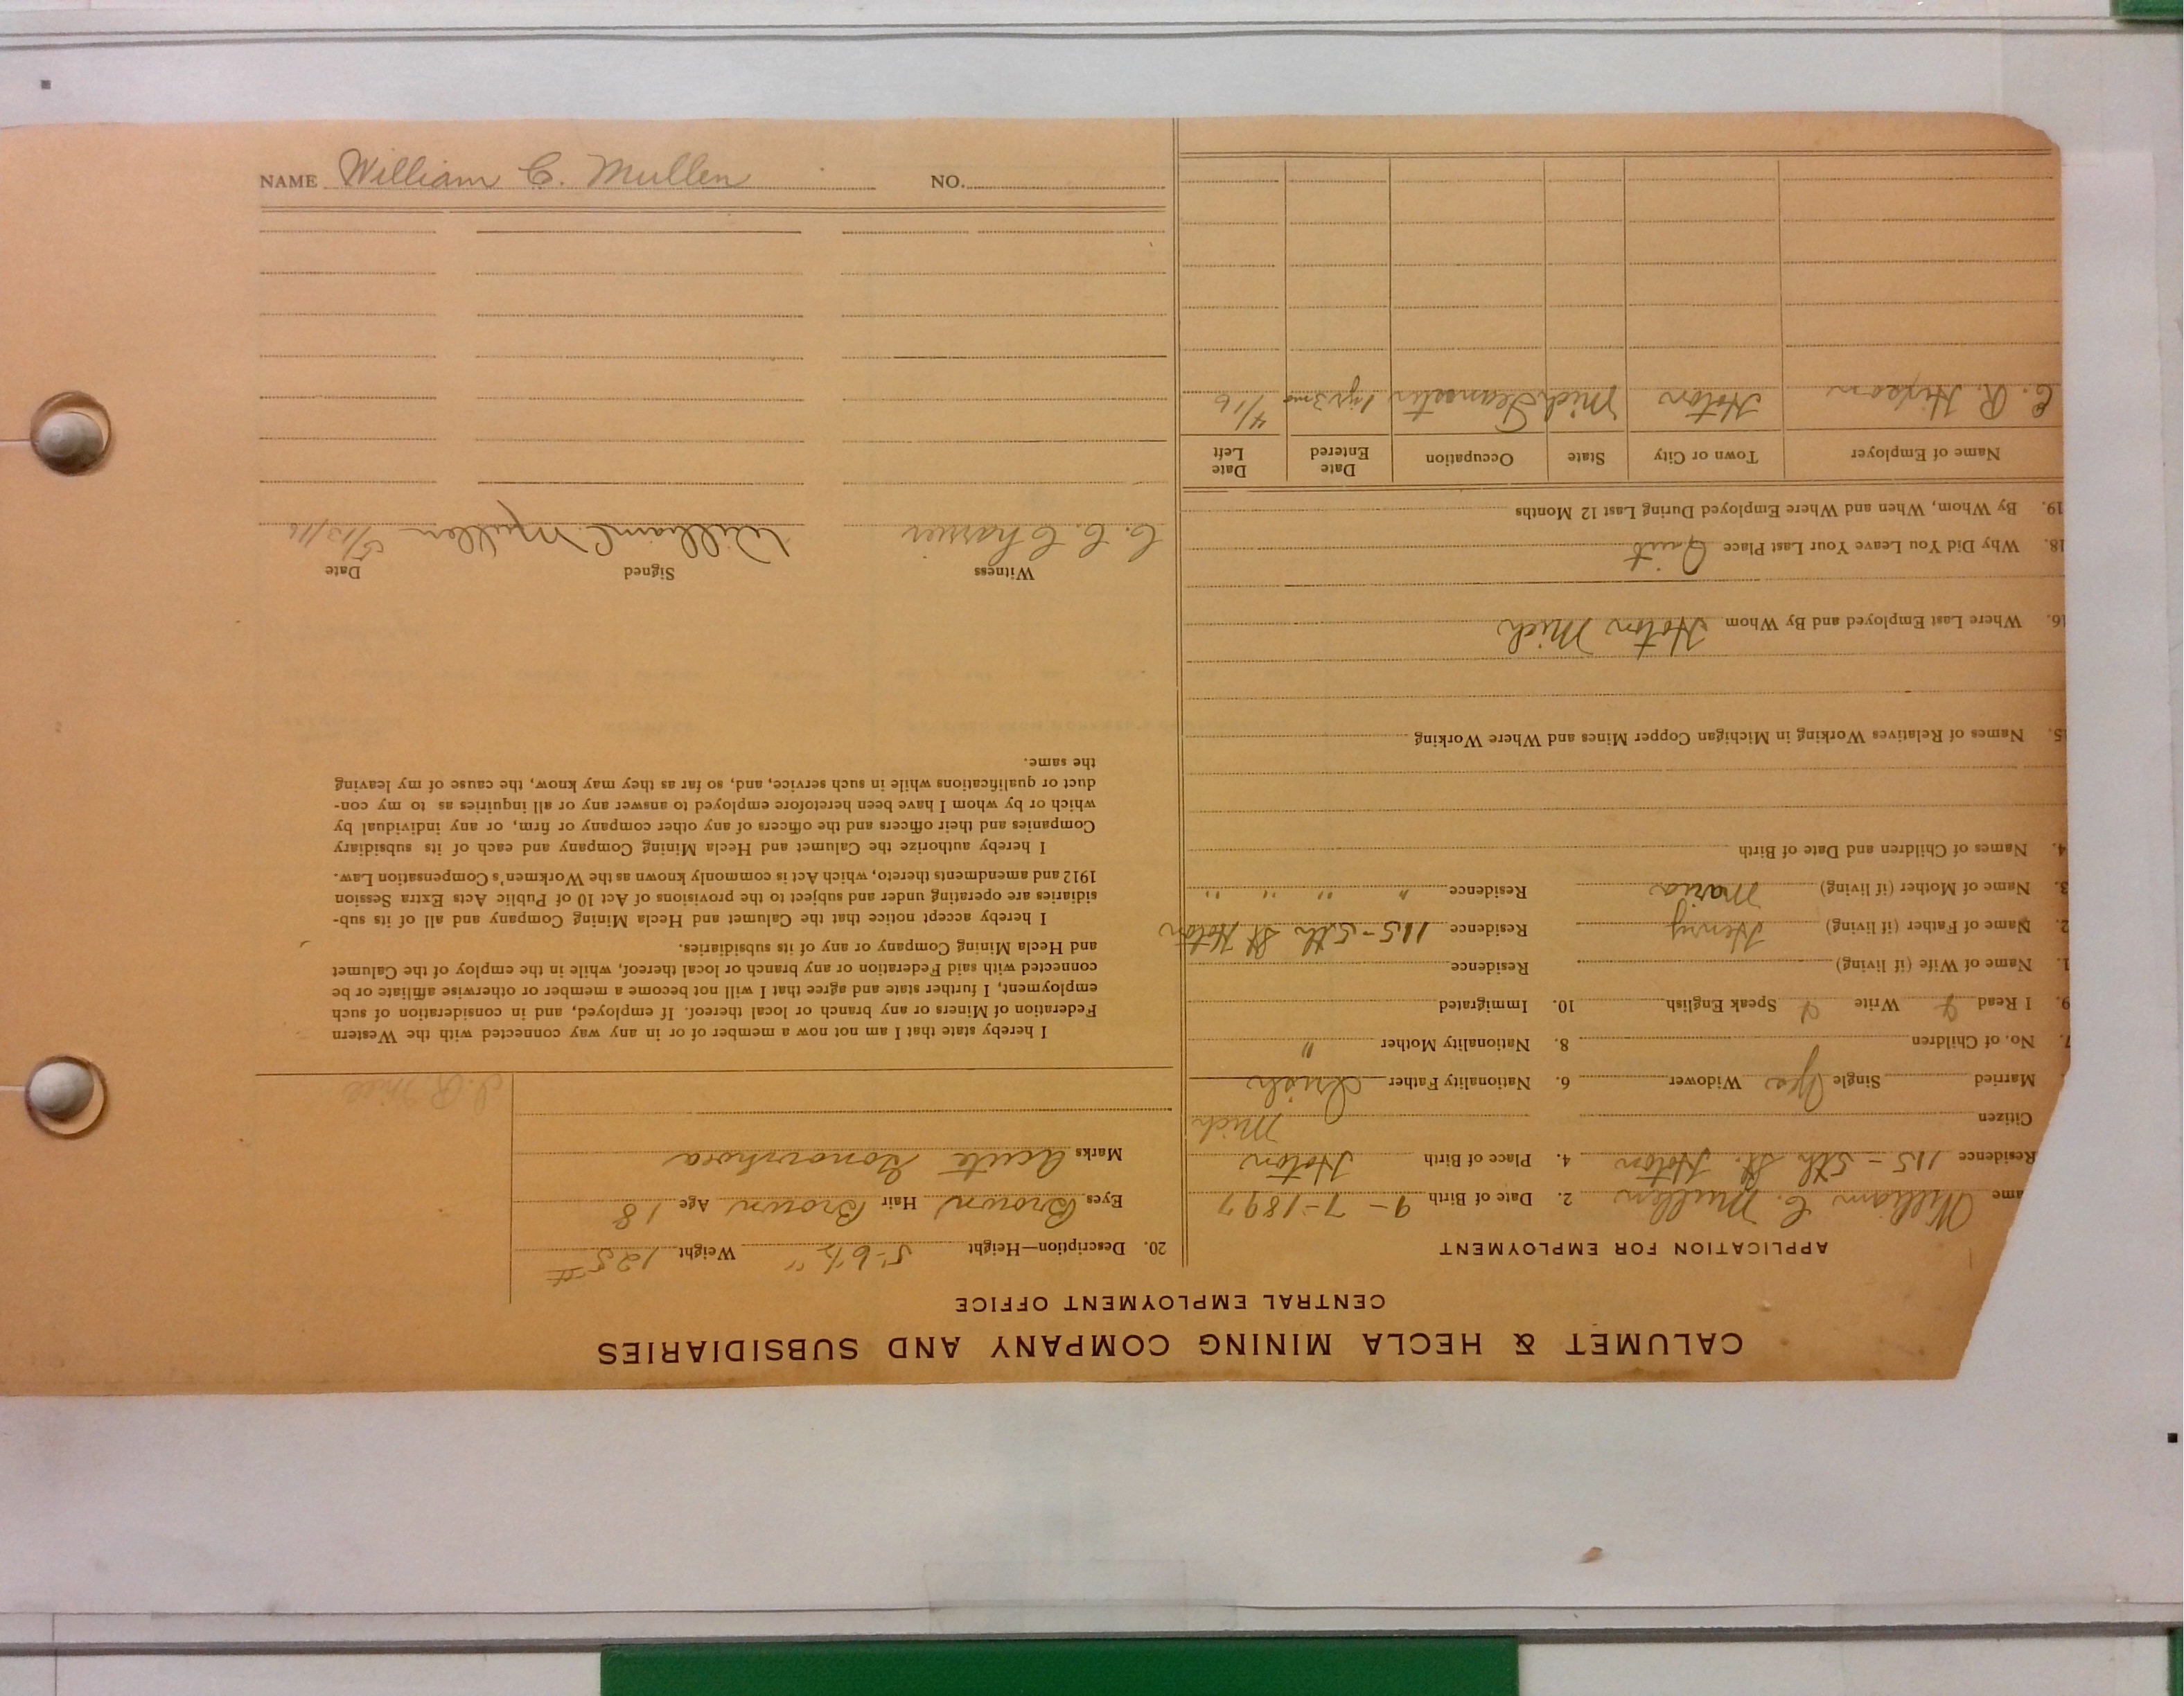 CALUMET & HECLA MINING COMPANY AND SUBSIDIARIES
CENTRAL EMPLOYMENT OFFICE
APPLICATION FOR EMPLOYMENT
ame William C. Mullen 2. Date of Birth 9-7-1897
Residence 115-5th St. Hoton 4. Place of Birth Hoton
Mich
Citizen
Married Single Yes Widower 6. Nationality Father Irish
7. No. of Children 8. Nationality Mother "
9. I Read Write Speak English 10. Immigrated
1. Name of Wife (if living) Residence
2. Name of Father (if living) Henry Residence 115-5th St Hoton
3. Name of Mother (if living) Maria Residence " " " "
4. Names of Children and Date of Birth
5. Names of Relatives Working in Michigan Copper Mines and Where Working
16. Where Last Employed and By Whom Hoton Mich
18. Why Did You Leave Your Last Place Quit
19. By Whom, When and Where Employed During Last 12 Months
Name of Employer Town or City State Occupation Date Entered Date Left
C. R. Hixson Hoton Mich Teamster 1 yr 3 mo 4/16
20. Description—Height 5-6½" Weight 125#
Eyes Brown Hair Brown Age 18
Marks Acute Gonorrhoea
I hereby state that I am not now a member of or in any way connected with the Western
Federation of Miners or any branch or local thereof. If employed, and in consideration of such
employment, I further state and agree that I will not become a member or otherwise affiliate or be
connected with said Federation or any branch or local thereof, while in the employ of the Calumet
and Hecla Mining Company or any of its subsidiaries.
I hereby accept notice that the Calumet and Hecla Mining Company and all of its sub-
sidiaries are operating under and subject to the provisions of Act 10 of Public Acts Extra Session
1912 and amendments thereto, which Act is commonly known as the Workmen's Compensation Law.
I hereby authorize the Calumet and Hecla Mining Company and each of its subsidiary
Companies and their officers and the officers of any other company or firm, or any individual by
which or by whom I have been heretofore employed to answer any or all inquiries as to my con-
duct or qualifications while in such service, and, so far as they may know, the cause of my leaving
the same.
Witness Signed Date
C. C. Charrier William C Mullen 5/13/16
NAME William C. Mullen NO.